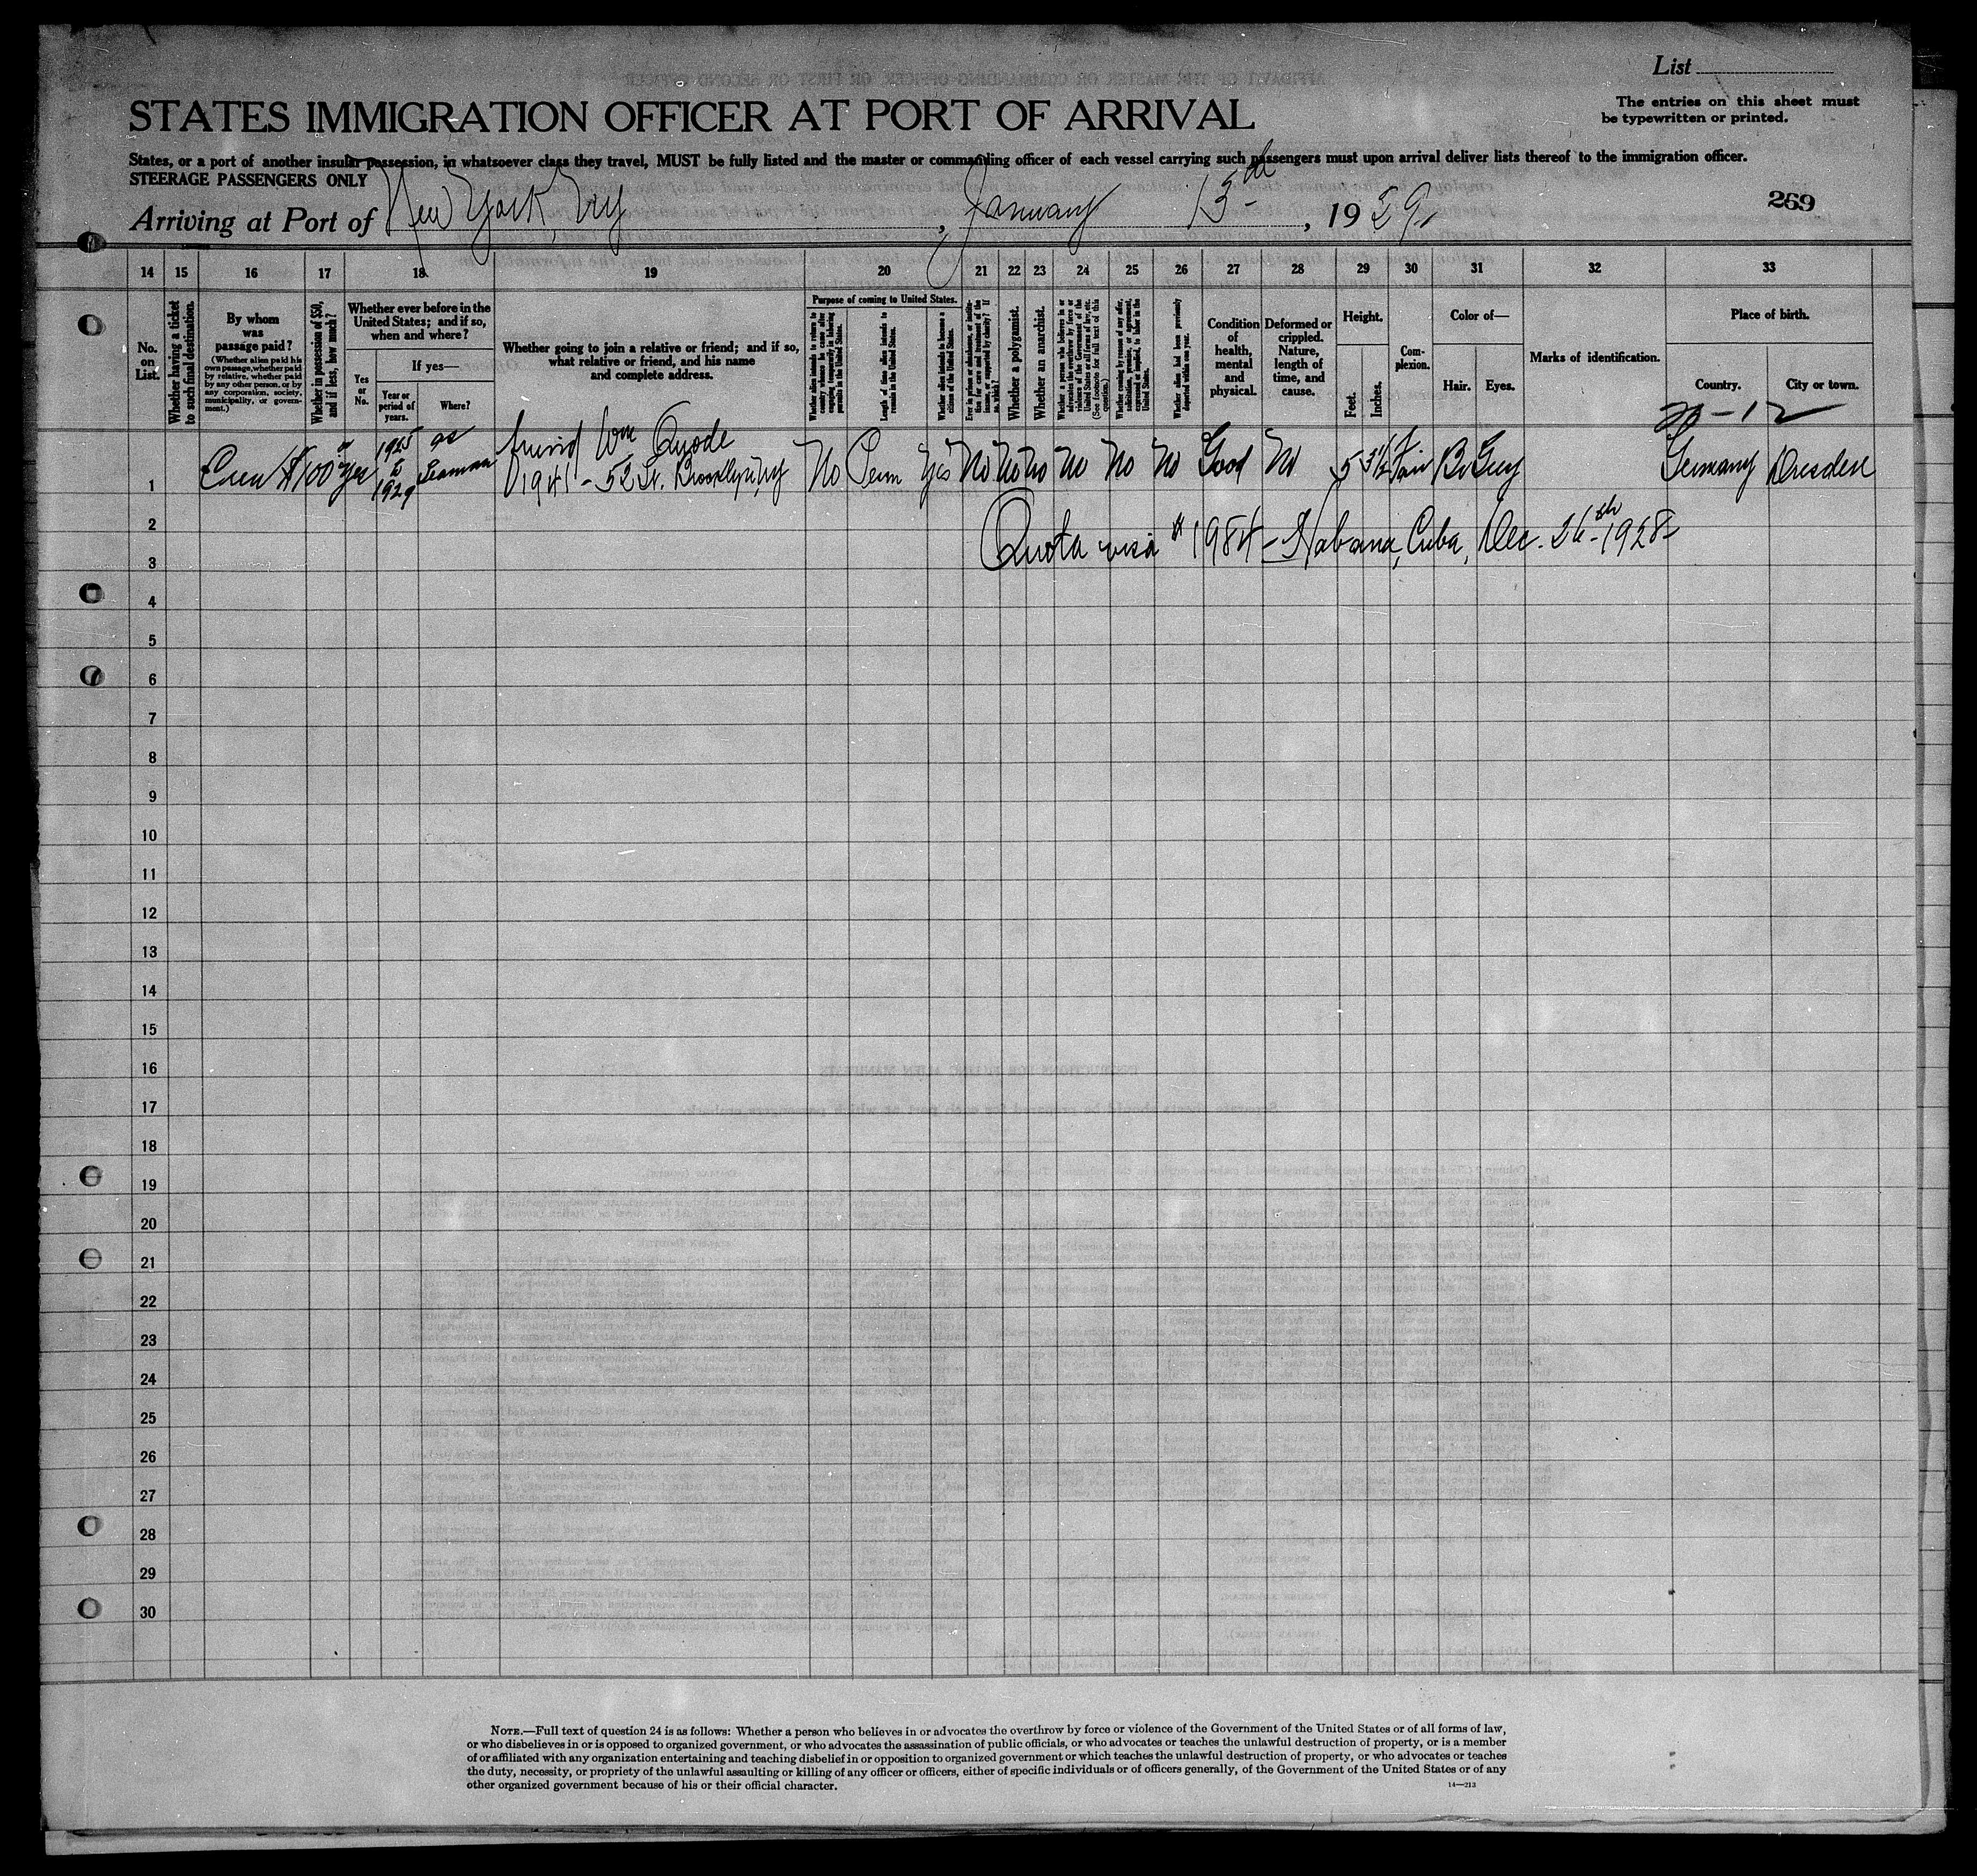 List
The entries on this sheet must
be typewritten or printed.
STATES IMMIGRATION OFFICER AT PORT OF ARRIVAL
States, or a port of another insular possession, in whatsoever class they travel, MUST be fully listed and the master or commanding officer of each vessel carrying such passengers must upon arrival deliver lists thereof to the immigration officer.
STEERAGE PASSENGERS ONLY
269
Arriving at Port of New York, Ny, January 13th, 1929
14 15 16 17 18 19 20 21 22 23 24 25 26 27 28 29 30 31 32 33
No. on List.
Whether having a ticket to such final destination.
By whom was passage paid?
(Whether alien paid his own passage, whether paid by relative, whether paid by any other person, or by any corporation, society, municipality, or government.)
Whether in possession of $50, and if less, how much?
Whether ever before in the United States; and if so, when and where?
Yes or No.
If yes—
Year or period of years.
Where?
Whether going to join a relative or friend; and if so, what relative or friend, and his name and complete address.
Purpose of coming to United States.
Whether alien intends to return to country whence he came after engaging temporarily in laboring pursuits in the United States.
Length of time alien intends to remain in the United States.
Whether alien intends to become a citizen of the United States.
Ever in prison or almshouse, or institution for care and treatment of the insane, or supported by charity? If so, which?
Whether a polygamist.
Whether an anarchist.
Whether a person who believes in or advocates the overthrow by force or violence of the Government of the United States or all forms of law, etc. (See footnote for full text of this question.)
Whether coming by reason of any offer, solicitation, promise, or agreement, expressed or implied, to labor in the United States.
Whether alien had been previously deported within one year.
Condition of health, mental and physical.
Deformed or crippled. Nature, length of time, and cause.
Height.
Feet.
Inches.
Complexion.
Color of—
Hair.
Eyes.
Marks of identification.
Place of birth.
Country.
City or town.
1 $100 yes 1925 to 1929 as Seaman friend Wm 1941 - 52 St. Brooklyn, Ny No Perm Yes No No No No No No Good No 5 3½ Fair Br Grey Germany Dresden
Quota visa # 1984 - Habana, Cuba, Dec. 26th - 1928
2
3
4
5
6
7
8
9
10
11
12
13
14
15
16
17
18
19
20
21
22
23
24
25
26
27
28
29
30
NOTE.—Full text of question 24 is as follows: Whether a person who believes in or advocates the overthrow by force or violence of the Government of the United States or of all forms of law,
or who disbelieves in or is opposed to organized government, or who advocates the assassination of public officials, or who advocates or teaches the unlawful destruction of property, or is a member
of or affiliated with any organization entertaining and teaching disbelief in or opposition to organized government or which teaches the unlawful destruction of property, or who advocates or teaches
the duty, necessity, or propriety of the unlawful assaulting or killing of any officer or officers, either of specific individuals or of officers generally, of the Government of the United States or of any
other organized government because of his or their official character.
14—213